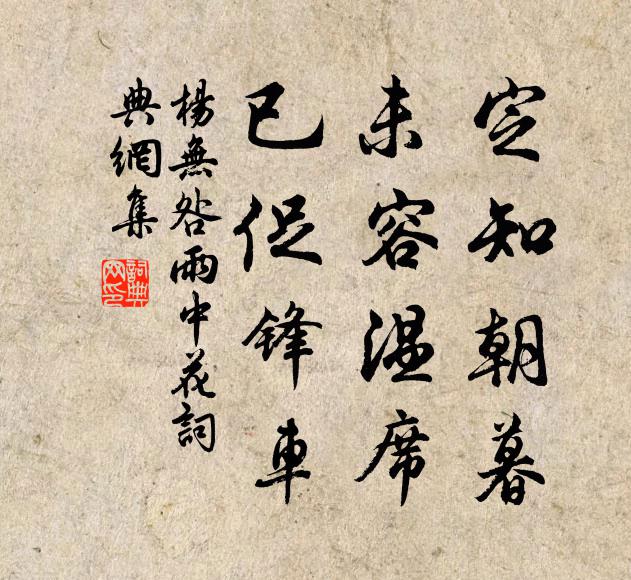 定知朝暮
未容温席
已促锋車
楊無咎雨中花詞
典網集
詞典网印